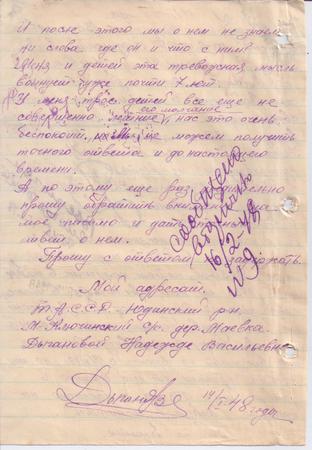 И после этого мы о нем не знаем
ни слова где он и что с ним?
и детей эта тревожная мысль
уже почти 7 лет.
У меня трое детей все еще не
совершенно его молчание нас это очень
беспокоит, мы не можем получить
точного ответа и до настоящего
времени.
А по этому еще раз
прошу обратить на
мое письмо и дать
о нем.
Прошу с ответом не задержать.
Мой адресат.
Т.А.С.С.Р. Юдинский р-н
М. Ключинский с/с. дер. Маевка.
Дыгановой Надежде Васильевне
Дыганова
14/I 48 года
сообщено
вторично
16/2 48